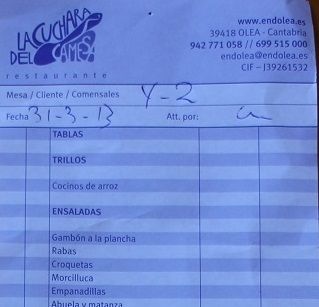 LA CUCHARA
DEL
restaurante
www.endolea.es
39418 OLEA - Cantabria
942 771 058 // 699 515 000
endolea@endolea.es
CIF – J39261532
Mesa / Cliente / Comensales Y-2
Fecha 31-3-13 Att. por:
TABLAS
TRILLOS
Cocinos de arroz
ENSALADAS
Gambón a la plancha
Rabas
Croquetas
Morcilluca
Empanadillas
Abuela y matanza